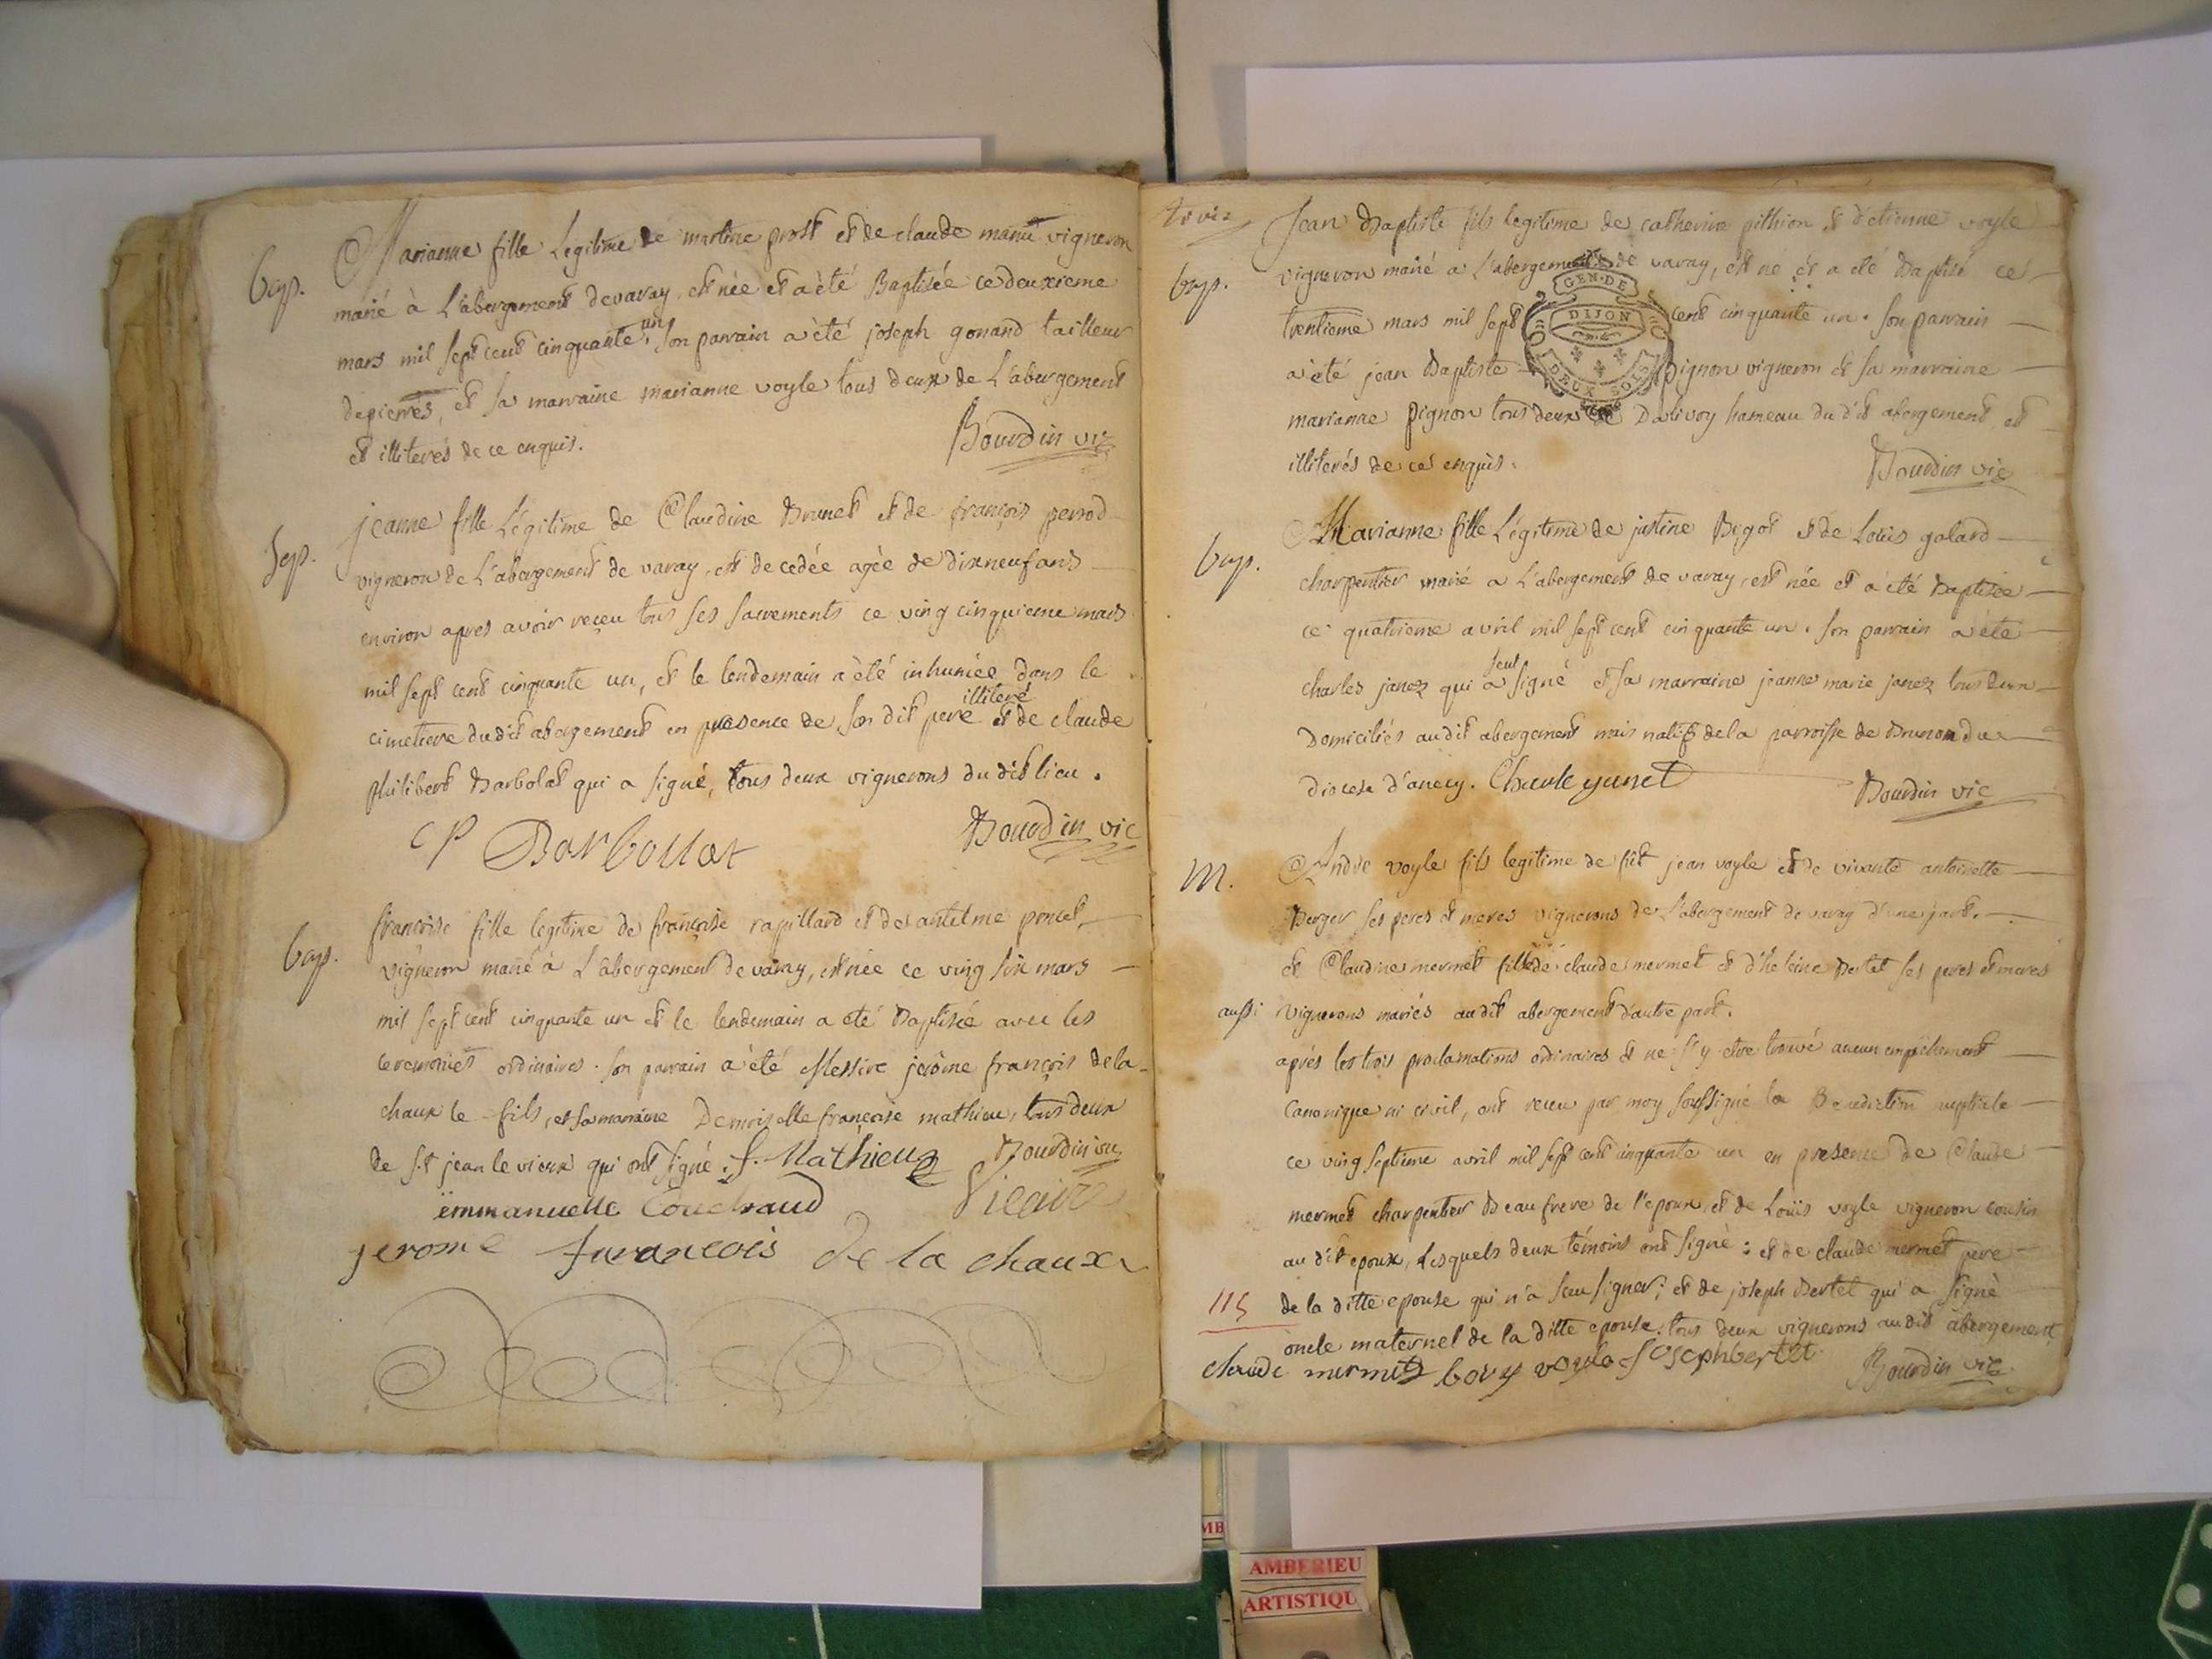 bap.
Marianne fille Legitime de martine prost et de claude manu vigneron
marié à L'abergement devaray, est née et a été Baptisée ce deuxieme
mars mil sept cent cinquante un, son parrain a été joseph gonand tailleur
depierres, et sa marraine marianne voyle tous deux de L'abergement
et illiterés de ce enquis.
Bourdin vic
Sep.
jeanne fille Légitime de Claudine Brunet et de françois perrod
vigneron de L'abergement de varay, est decedée agée de dixneuf ans
environ apres avoir reçeu tous ses sacrements ce ving cinquieme mars
mil sept cent cinquante un, et le lendemain a été inhumée dans le
cimetiere dudit abergement en presence de son dit pere illiteré et de claude
philibert Barbolat qui a signé, tous deux vignerons dudit lieu.
CP Barbollat
Bourdin vic
bap.
francoise fille legitime de françoise rapillard et de antelme poncet
vigneron marié à L'abergement de varay, est née ce ving six mars
mil sept cent cinquante un et le lendemain a été Baptisée avec les
ceremonies ordinaires. son parrain a été Messire jerôme françois dela
chaux le fils, et sa marraine Demoiselle françoise mathieu, tous deux
de s.t jean le vieux qui ont signé. f. Mathieu
Bourdin
Vicaire
emmanuelle Couchraud
jerome françois De la chaux
bap.
Jean Baptiste fils legitime de catherine pithion et d'etienne voyle
vigneron marié a L'abergement de varay, est né et a été Baptisé ce
trentieme mars mil sept cent cinquante un. son parrain
a été jean Baptiste pignon vigneron et sa marraine
marianne pignon tous deux de Dalivoy hameau du dit abergement, et
illiterés de ce enquis.
Bourdin vic
GEN. DE
DIJON
DEUX SOLS
bap.
Marianne fille Légitime de justine Bigot et de Louis galard
charpentier marié a L'abergement de varay, est née et a été Baptisée
ce quatrieme avril mil sept cent cinquante un. son parrain a été
charles janez qui a seul signé et sa marraine jeanne marie janez tous deux
Domiciliés audit abergement mais natifs dela parroisse de Brunon du
diocese d'anecy. Charle yanet
Bourdin vic
M.
André voyle fils legitime de fût jean voyle et de vivante antoinette
Berger ses peres et meres vignerons de L'abergement de varay d'une part.
et Claudine mermet fille de claude mermet et d'heleine Bertet ses peres et meres
aussi vignerons mariés audit abergement d'autre part.
aprés les trois proclamations ordinaires et ne s'y etre trouvé aucun empêchement
Canonique ni civil, ont receu par moy soussigné la Benediction nuptiale
ce ving septieme avril mil sept cent cinquante un en presence de Claude
mermet charpentier Beau frere de l'epoux, et de Loüis voyle vigneron cousin
au dit epoux, lesquels deux témoins ont signé : et de claude mermet pere
115
de la ditte epouse qui n'a sceu signer; et de joseph Bertet qui a signé
oncle maternel de la ditte epouse. tous deux vignerons audit abergement
claude mermet Louy voyle Josephbertet
Bourdin vic
AMBERIEU
ARTISTIQU